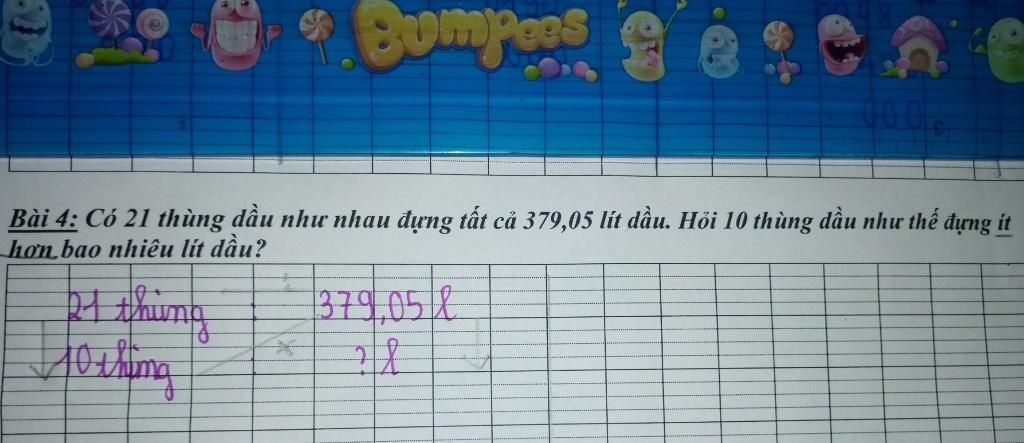 BUMPees
Bài 4: Có 21 thùng dầu như nhau đựng tất cả 379,05 lít dầu. Hỏi 10 thùng dầu như thế đựng ít
hơn bao nhiêu lít dầu?
21 thùng : 379,05 l
10 thùng : ? l